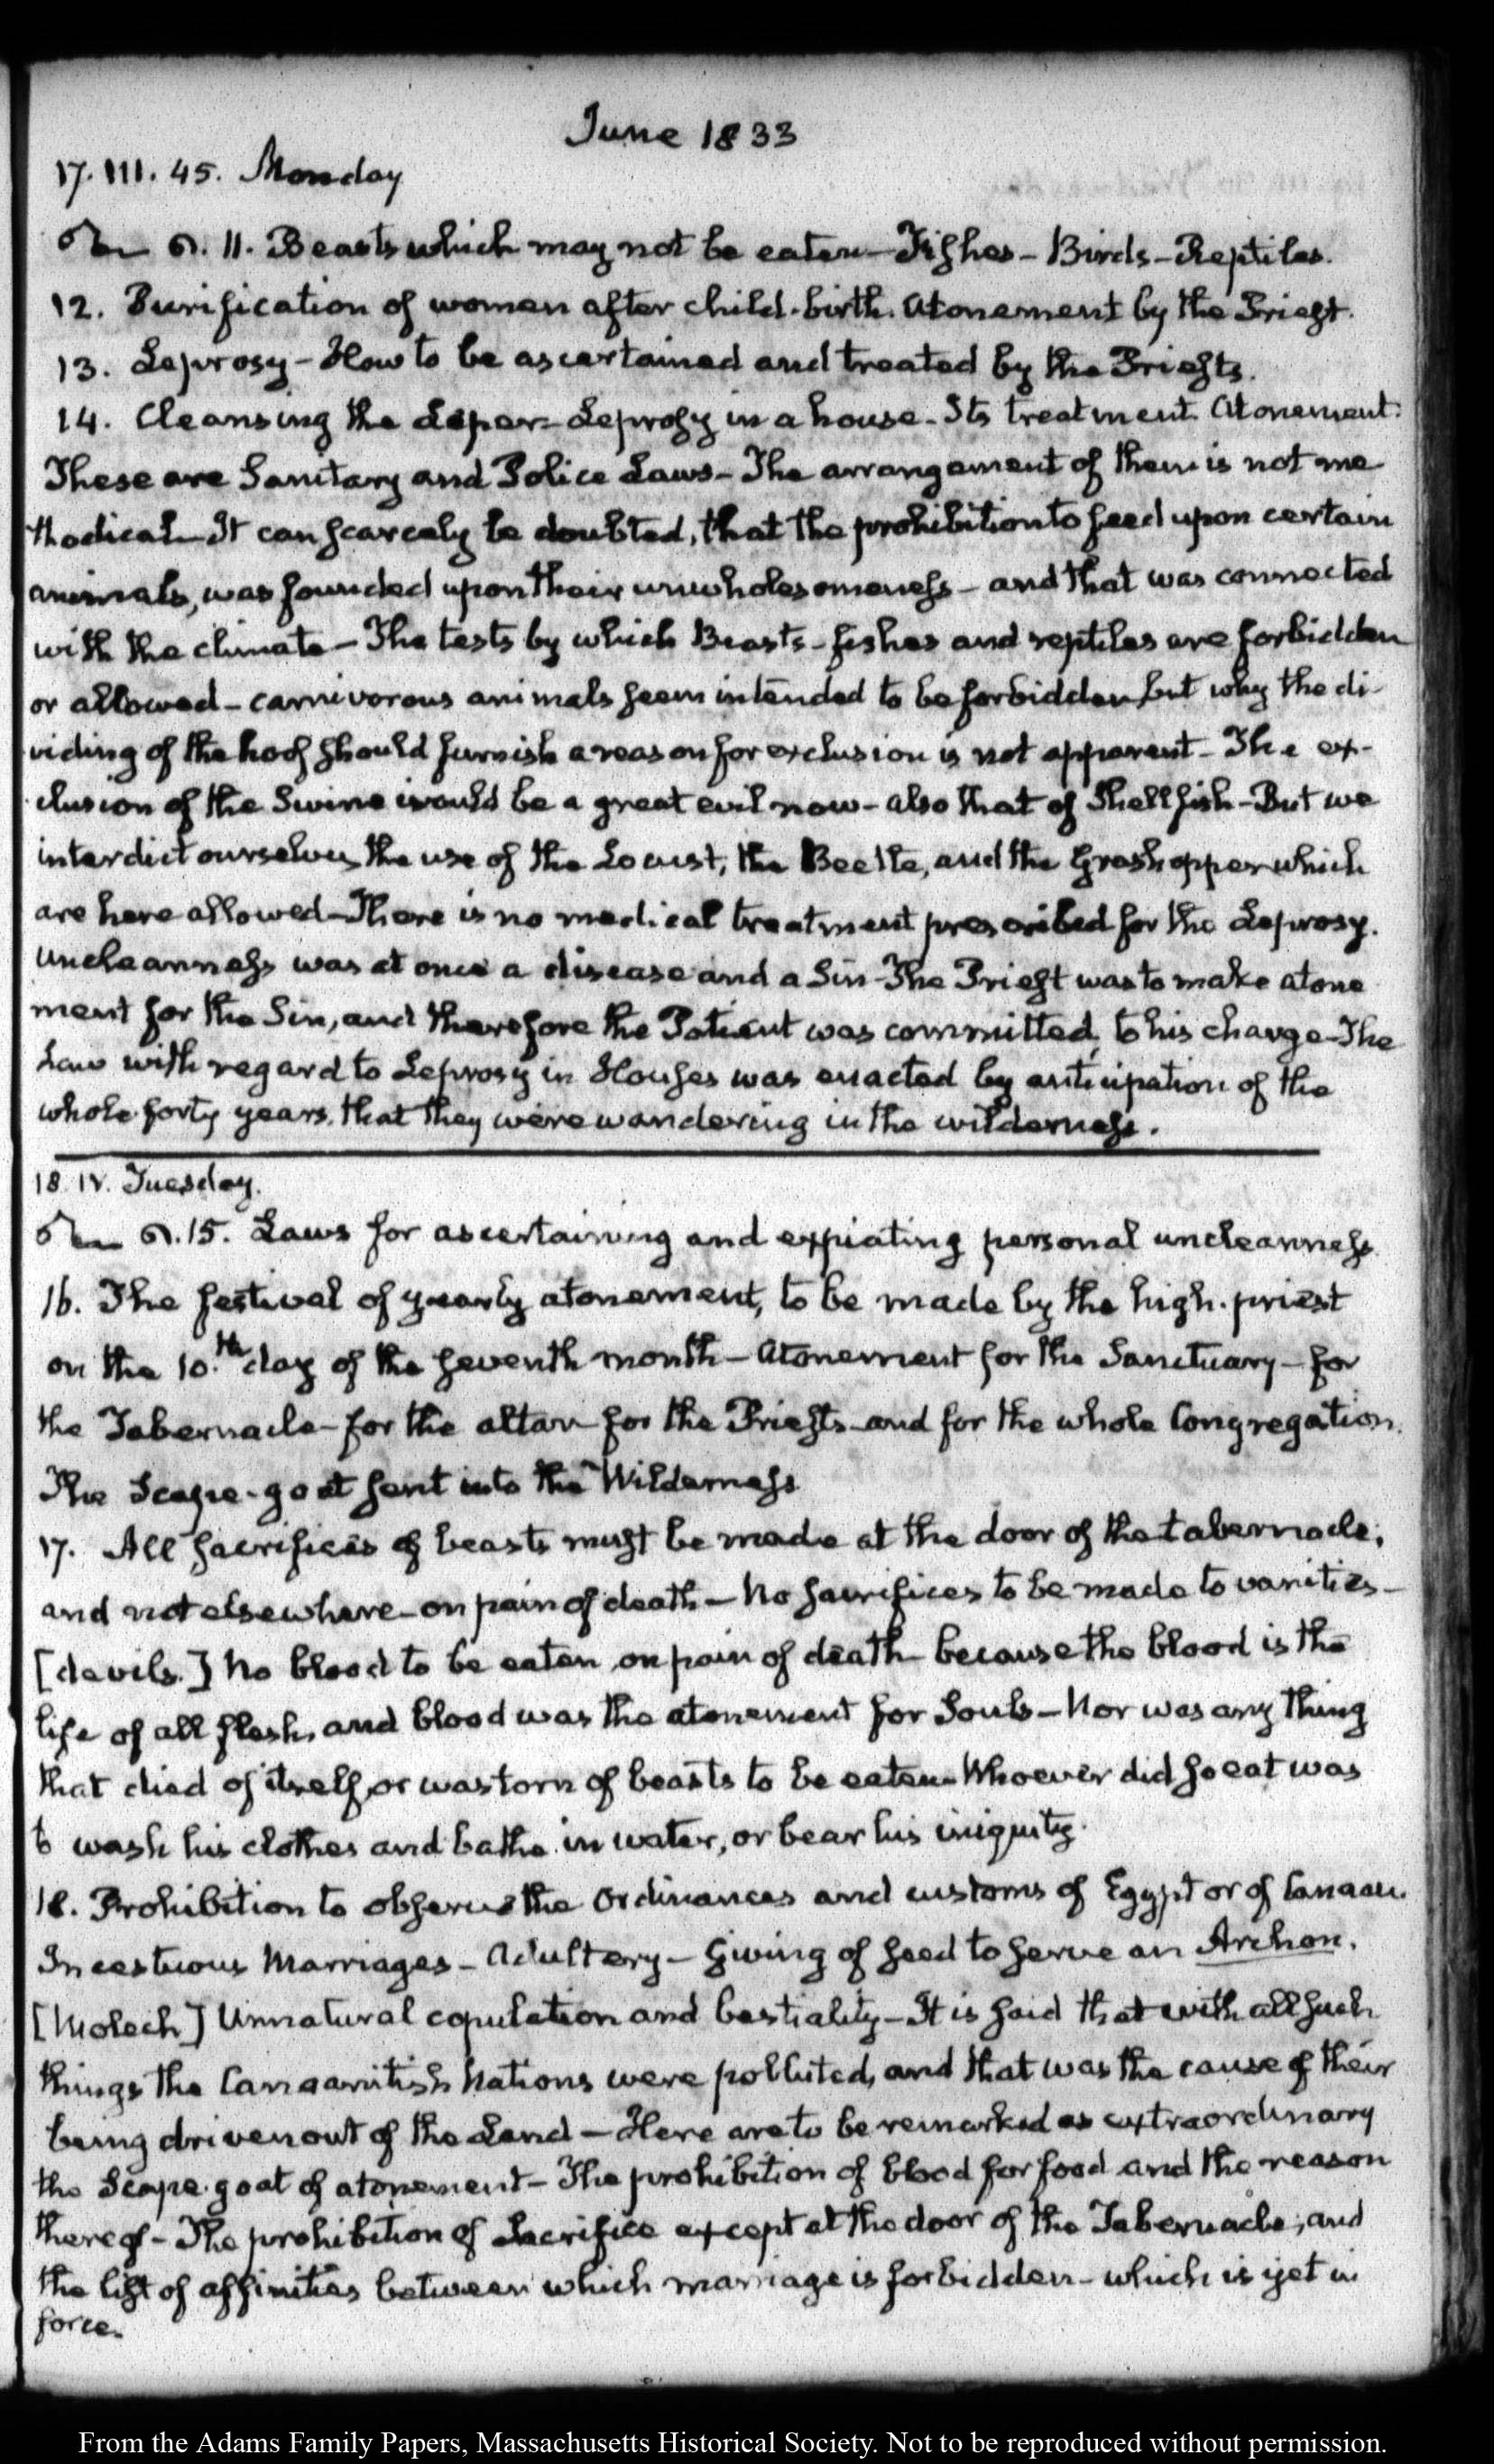 June 1833
17. III. 45. Monday
11. Beasts which may not be eaten—Fishes—Birds—Reptiles.
12. Purification of women after child-birth. Atonement by the Priest.
13. Leprosy—How to be ascertained and treated by the Priests.
14. Cleansing the Leper—Leprosy in a house—Its treatment. Atonement.
These are Sanitary and Police Laws—The arrangement of them is not me-
thodical—It can scarcely be doubted, that the prohibition to feed upon certain
animals, was founded upon their unwholesomeness—and that was connected
with the climate—The tests by which Beasts—fishes and reptiles are forbidden
or allowed—carnivorous animals seem intended to be forbidden, but why the di-
viding of the hoof should furnish a reason for exclusion is not apparent—The ex-
clusion of the Swine would be a great evil now—also that of Shell fish—But we
interdict ourselves the use of the Locust, the Beetle, and the Grashopper which
are here allowed—There is no medical treatment prescribed for the Leprosy.
Uncleanness was at once a disease and a Sin—The Priest was to make atone-
ment for the Sin, and therefore the Patient was committed to his charge—The
Law with regard to Leprosy in Houses was enacted by anticipation of the
whole forty years, that they were wandering in the wilderness.
18. IV. Tuesday.
15. Laws for ascertaining and expiating personal uncleanness
16. The festival of yearly atonement, to be made by the high-priest
on the 10.th day of the seventh month—Atonement for the Sanctuary—for
the Tabernacle—for the altar—for the Priests—and for the whole Congregation.
The Scape-goat sent into the Wilderness
17. All sacrifices of beasts must be made at the door of the tabernacle;
and not elsewhere—on pain of death—No sacrifices to be made to vanities—
[devils.] No blood to be eaten, on pain of death—because the blood is the
life of all flesh, and blood was the atonement for Souls—Nor was any thing
that died of itself, or was torn of beasts to be eaten—Whoever did so eat was
to wash his clothes and bathe in water, or bear his iniquity.
18. Prohibition to observe the Ordinances and customs of Egypt or of Canaan.
Incestuous Marriages—Adultery—Giving of seed to serve an Archon.
[Molech] Unnatural copulation and bestiality—It is said that with all such
things the Canaanitish Nations were polluted, and that was the cause of their
being driven out of the Land—Here are to be remarked as extraordinary
the Scape-goat of atonement—The prohibition of blood for food and the reason
thereof—The prohibition of Sacrifice except at the door of the Tabernacle; and
the list of affinities between which marriage is forbidden—which is yet in
force.
From the Adams Family Papers, Massachusetts Historical Society. Not to be reproduced without permission.